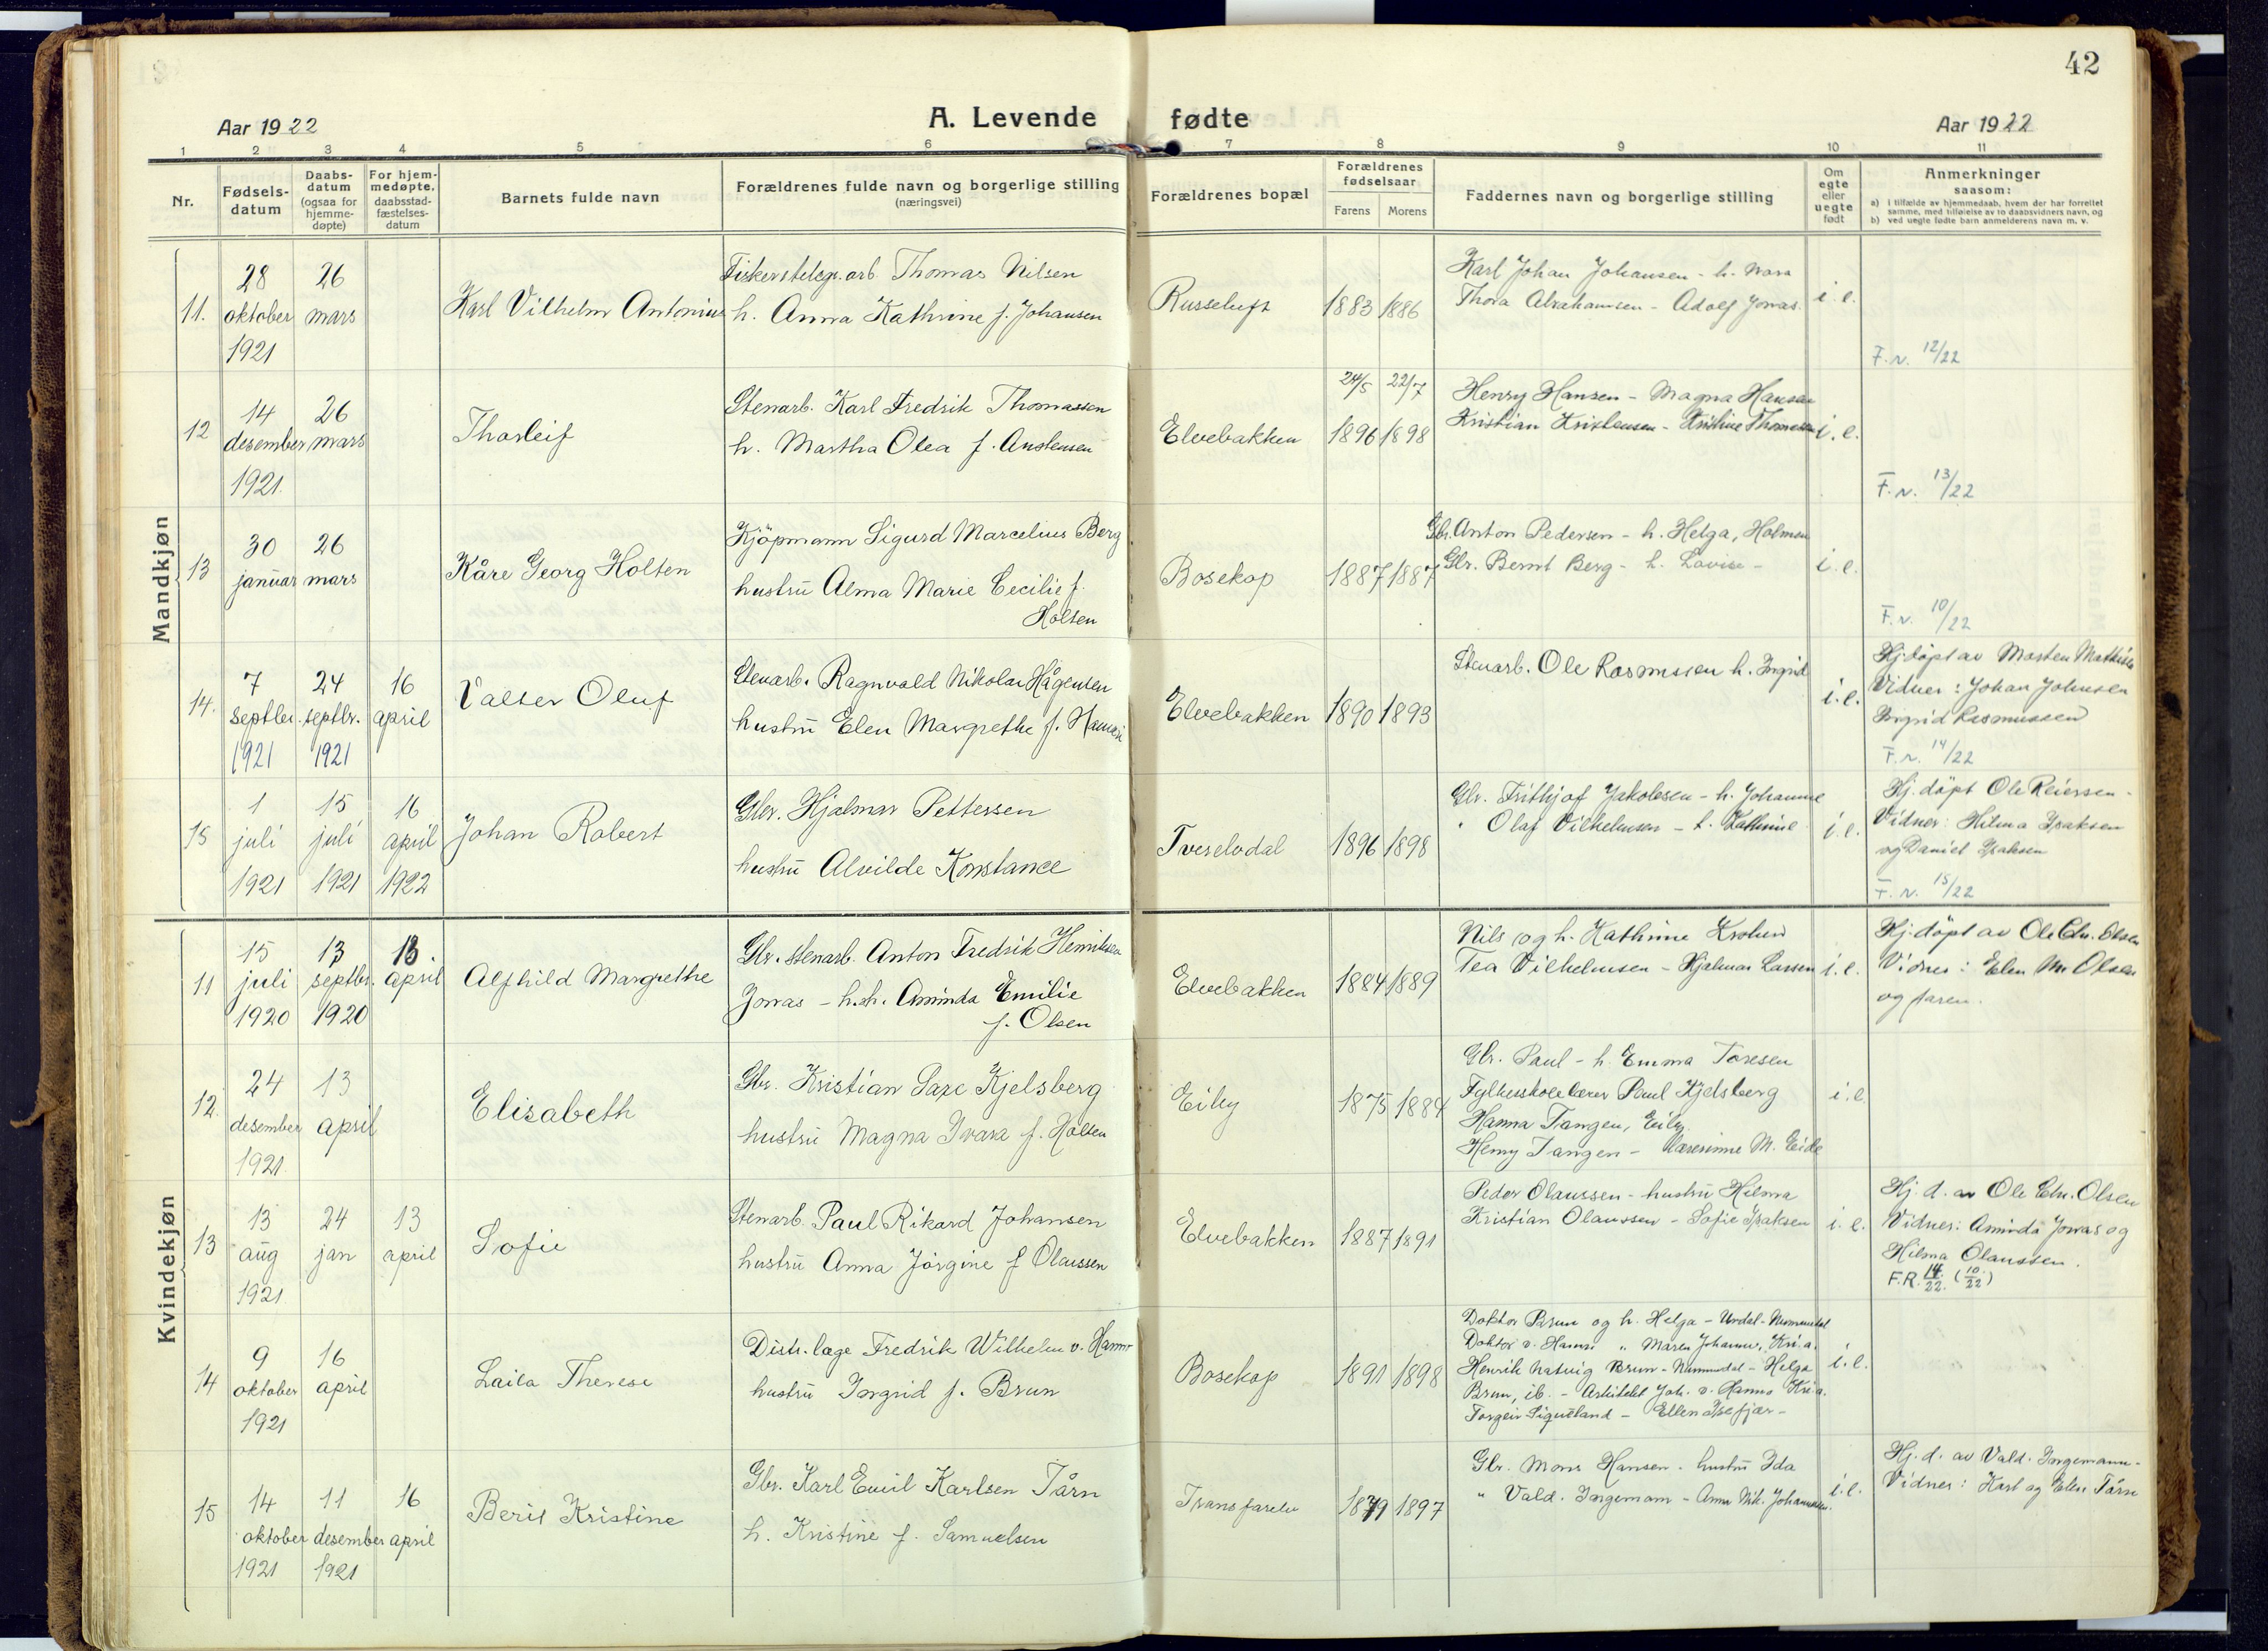 42
Aar 1922
A. Levende fødte
Aar 1922
1 2 3 4 5 6 7 8 9 10 11
Nr.
Fødsels-
datum
Daabs-
datum
(ogsaa for
hjemme-
døpte)
For hjem-
medøpte,
daabsstad-
fæstelses-
datum
Barnets fulde navn
Forældrenes fulde navn og borgerlige stilling
(næringsvei)
Forældrenes bopæl
Forældrenes
fødselsaar
Farens Morens
Faddernes navn og borgerlige stilling
Om
egte
eller
uegte
født
Anmerkninger
saasom:
a) i tilfælde av hjemmedaab, hvem der har forrettet
samme, med tilføielse av to daabsvidners navn, og
b) ved uegte fødte barn anmelderens navn m. v.
Mandkjøn
11.
28
oktober
1921
26
mars
Karl Vilhelm Antonius
Fisker telegr. arb. Thomas Nilsen
h. Anna Kathrine f. Johansen
Russeluft
1883 1886
Karl Johan Johansen - h. Nora
Thora Abrahamsen - Adolf Jonas.
i. e.
F. r. 12/22
12
14
desember
1921.
26
mars
Thorleif
Stenarb. Karl Fredrik Thomassen
h. Martha Olea f. Anstensen
Elvebakken
24/5 22/7
1896 1898
Henry Hansen - Magna Hansen
Kristian Kristensen - Kristine Thomassen
i. e.
F. r. 13/22
13
30
januar
26
mars
Kåre Georg Holten
Kjöpmann Sigurd Marcelius Berg
hustru Alma Marie Cecilie f.
Holten
Bosekop
1887 1887
Gbr. Anton Pedersen - h. Helga, Holmen
Gbr. Bernt Berg - h. Lovise -
i. e.
F. r. 10/22
14.
7
septbr.
1921
24
septbr.
1921
16
april
Valter Oluf
Stenarb. Ragnvald Nikolai Hågensen
hustru Elen Margrethe f. Hansen
Elvebakken
1890 1893
Stenarb. Ole Rasmussen h. Ingrid
i. e.
Hj.döpt av Morten Mathisen
Vidner: Johan Johnsen
Ingrid Rasmussen
F. r. 14/22
15
1
juli
1921
15
juli
1921
16
april
1922
Johan Robert
Gbr. Hjalmar Pettersen
hustru Alvilde Konstance
Tverelvdal
1896 1898
Gbr. Frithjof Jakobsen - h. Johanne
" Olaf Vilhelmsen - h. Kathrine
i. e.
Hj. döpt Ole Reiersen -
Vidner: Hilma Isaksen
og Daniel Isaksen
F. r. 15/22
Kvindekjøn
11
15
juli
1920
13
septbr.
1920
13.
april
Alfhild Margrethe
Gbr. stenarb. Anton Fredrik Henriksen
Jonas - h.h. Aminda Emilie
f. Olsen
Elvebakken
1884 1889
Nils og h. Kathrine Krohn
Tea Vilhelmsen - Hjalmar Larsen
i. e.
Hj.döpt av Ole Chr. Olsen
Vidner: Elen M. Olsen
og faren.
12.
24
desember
1921.
13
april
Elisabeth
Gbr. Kristian Saxe Kjelsberg
hustru Magna Ivara f. Holten
Eiby
1875 1884
Gbr. Paul - h. Emma Toresen
Fylkesskolelærer Paul Kjelsberg
Hanna Tangen, Eiby.
Henry Tangen - Lærerinne M. Eide
i. e.
13
13
aug
1921
24
jan
13
april
Sofie
Stenarb. Paul Rikard Johansen
hustru Anna Jörgine f Olaussen
Elvebakken
1887 1891
Peder Olaussen - hustru Hilma
Kristian Olaussen - Sofie Isaksen
i. e.
Hj. d. av Ole Chr. Olsen
Vidner: Aminda Jonas og
Hilma Olaussen.
F.R. 14/22. (10/22)
14
9
oktober
1921
16
april
Laila Therese
Distr. læge Fredrik Wilhelm v. Hanno
hustru Ingrid f. Brun
Bosekop
1891 1898
Doktor Brun og h. Helga - Uvdal - Nummedal
Doktor v. Hanno " Maren Johanne, Kr.a.
Henrik Natvig Brun - Nummedal - Helga
Brun, ib. - Arkitekt Joh. v. Hanno Kr.a.
Torgeir - Ellen
i. e.
15
14
oktober
1921
11
desember
1921
16
april
Berit Kristine
Gbr. Karl Emil Karlsen Tårn
h. Kristine f. Samuelsen
Transfarelv
1879 1897
Gbr. Mons Hansen - hustru Ida
" Vald. Ingemann - Anna Nik. Johannesen.
i. e.
Hj. d. av Vald. Ingemann -
Vidner: Karl og Elen Tårn